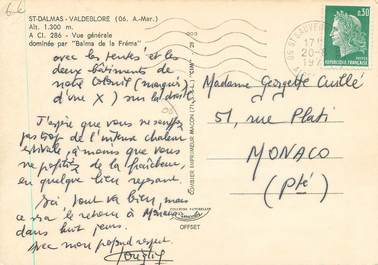 ST-DALMAS - VALDEBLORE (06. A.-Mar.)
Alt. 1.300 m.
A CI. 286 - Vue générale
dominée par "Balma de la Fréma"
avec les tentes et les
deux bâtiments de
notre (marqués
d'une X) sur la droite
J'espère que vous ne souffrez
pas trop de l'intense chaleur
estivale, à moins que vous
ne profitiez de la fraîcheur
en quelque lieu reposant.
Ici tout va bien, mais
ce sera le retour à Monaco
dans huit jours.
Avec mon profond respect.
COMBIER IMPRIMEUR MACON
"CIM"
OFFSET
06 ST SAUVEUR
0,30
REPUBLIQUE FRANCAISE
Madame Georgette Cuillé
51, rue Plati
MONACO
(Pté)